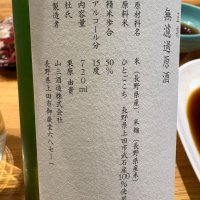 無濾過原酒
原材料名　米（長野県産）、米麹（長野県産米）
原料米　ひとごこち　長野県上田市武石産100％使用
精米歩合
アルコール分　15度
内容量　720ml
杜氏　栗原由貴
製造者　山三酒造株式会社
長野県上田市御嶽堂六八七ー一